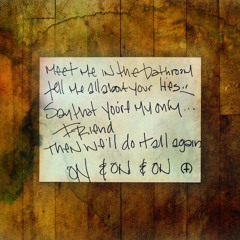 Meet me in the bathroom
tell me all about your lies...
Say that you're my only...
Friend
Then we'll do it all again
ON & ON & ON